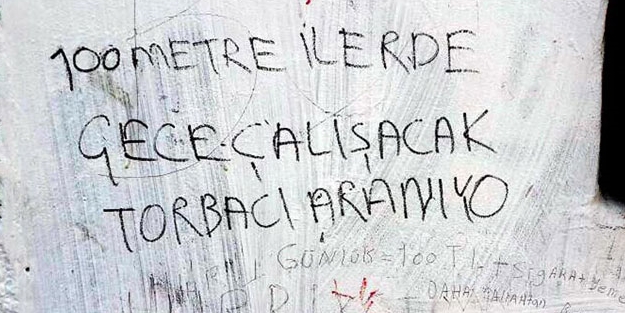 100 METRE İLERDE
GECE ÇALIŞACAK
TORBACI ARANIYO
GÜNLÜK = 100 TL + SİGARA + yeme